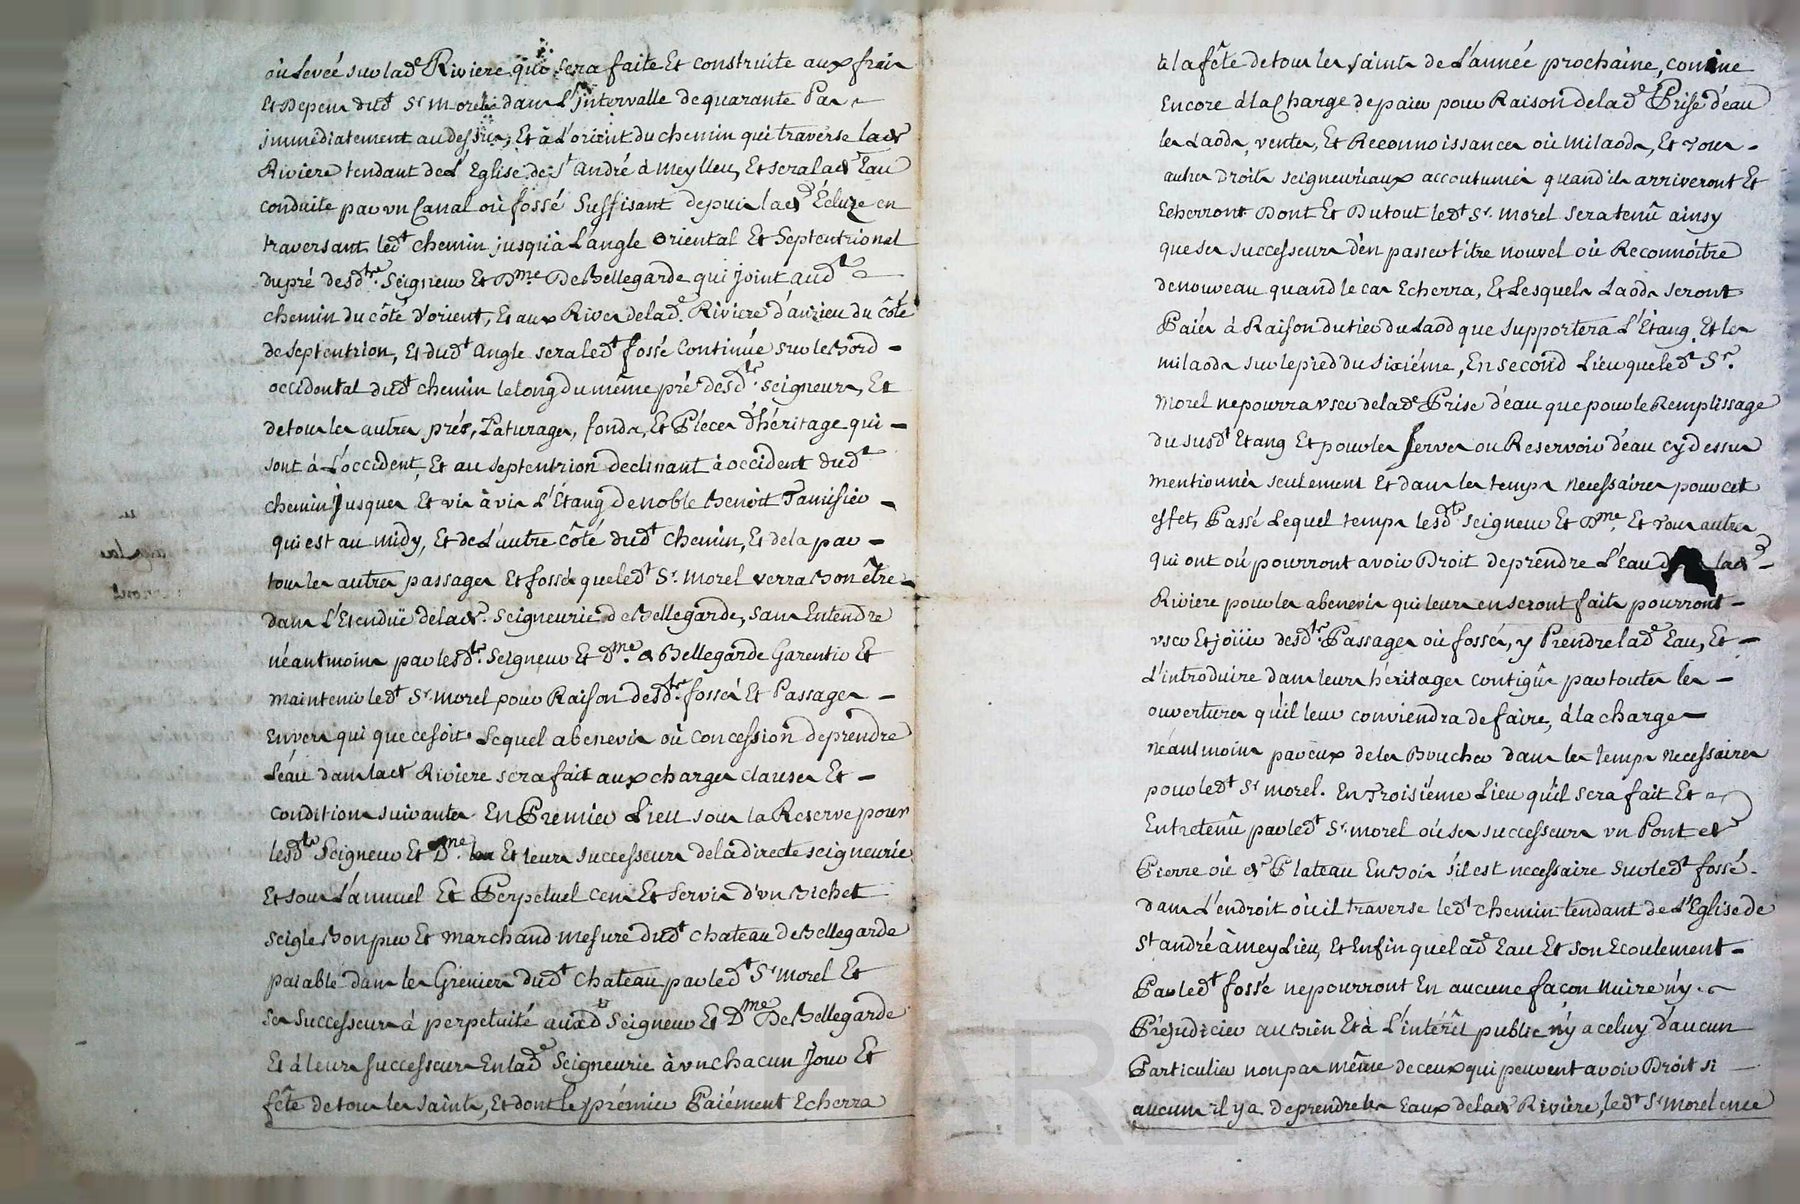 où Levée sur lad.e Riviere qui sera faite Et construite aux frais
Et Depens dud.t S.r morel dans L'jntervalle de quarante Pas
jmmédiatement au dessus, Et à L'orient du chemin qui traverse lad.e
Riviere tendant de L'Eglise de S.t andré à meylieu, Et sera lad.e Eau
conduite par un Canal où fossé suffisant depuis lad.e Écluze en
traversant led.t chemin jusqu'à L'angle oriental Et septentrional
du pré desd.ts Seigneur Et D.me De Bellegarde qui joint aud.t
chemin du côté d'orient, Et aux Rives de lad.e Riviere d'anzieu du côté
de septentrion, Et dud.t angle sera led.t fossé Continüé sur le Bord
occidental dud.t chemin le long du même pré desd.ts seigneurs, Et
de tous les autres prés, Paturages, fonds, Et Piéces d'héritage qui
sont à L'occident, Et au septentrion declinant à occident dud.t
chemin jusques Et vis à vis L'Étang de noble Benoit Tamisier
qui est au midy, Et de L'autre côté dud.t chemin, Et de la par
tous les autres passages Et fossés que led.t S.r morel verra Bon être
dans L'Etendüe de lad.e Seigneurie de Bellegarde, sans Entendre
néantmoins par lesd.ts Seigneur Et D.me de Bellegarde Garentir Et
maintenir led.t S.r morel pour Raison desd.ts fossés Et Passages
Envers qui que ce soit. Lequel abenevis où concession de prendre
L'eau dans lad.e Riviere sera fait aux charges clauses Et
Conditions suivantes En Premier Lieu sous la Reserve pour
lesd.ts Seigneur Et D.me Et leurs successeurs de la directe seigneurie
Et sous L'annuel Et Perpetuel cens Et servis d'un Bichet
seigle Bon pur Et marchand mesure dud.t chateau de Bellegarde
païable dans les Greniers dud.t chateau par led.t S.r morel Et
ses successeurs à perpetuité auxd. Seigneur Et D.me De Bellegarde
Et à leurs successeurs En lad.e Seigneurie à un chacun jour Et
fête de tous les saints, Et dont le prémier Païément Echerra
à la fête de tous les saints de L'année prochaine, comme
Encore à la Charge de païer pour Raison de lad.e Prise d'eau
les Laods, ventes, Et Reconnoissances où milaods, Et tous
autres Droits seigneuriaux accoutumés quand ils arriveront Et
Echerront Dont Et Du tout led.t S.r morel sera tenû ainsy
que ses successeurs d'en passer titre nouvel où Reconnoître
de nouveau quand le cas Echerra, Et Lesquels Laods seront
Païés à Raison du tier du Laod que supportera L'Etang. Et les
milaods sur le pied du sixiéme, En second Lieu que led.t S.r
morel ne pourra user de lad.e Prise d'eau que pour le Remplissage
du susd.t Etang Et pour les serves ou Reservoir d'eau cy dessus
mentionnés seulement Et dans les temps necessaires pour cet
effet, Passé Lequel temps lesd.ts seigneur Et D.me Et tous autres
qui ont où pourront avoir Droit de prendre L'Eau lad.e
Riviere pour les abenevis qui leurs en seront faits pourront
user Et joüir desd.ts Passages où fossés, y Prendre lad.e Eau, Et
L'introduire dans leurs héritages contigûs par toutes les
ouvertures qu'il leur conviendra de faire, à la charge
néantmoins par eux de les Boucher dans les temps necessaires
pour led.t S.r morel. En Troisiéme Lieu qu'il sera fait Et
Entretenû par led.t S.r morel où ses successeurs un Pont de
Pierre où de Plateau En Bois s'il est necessaire sur led.t fossé
dans L'endroit où il traverse led.t chemin tendant de L'Eglise de
S.t andré à meyLieu, Et Enfin que lad.e Eau Et son Ecoulement
Par led.t fossé ne pourront En aucune façon nuire n'y
Préjudicier au Bien Et à L'intérêt public n'y a celuy d'aucun
Particulier non pas même de ceux qui peuvent avoir Droit si
aucuns il y a de prendre les Eaux de lad.e Riviére, led.t S.r morel